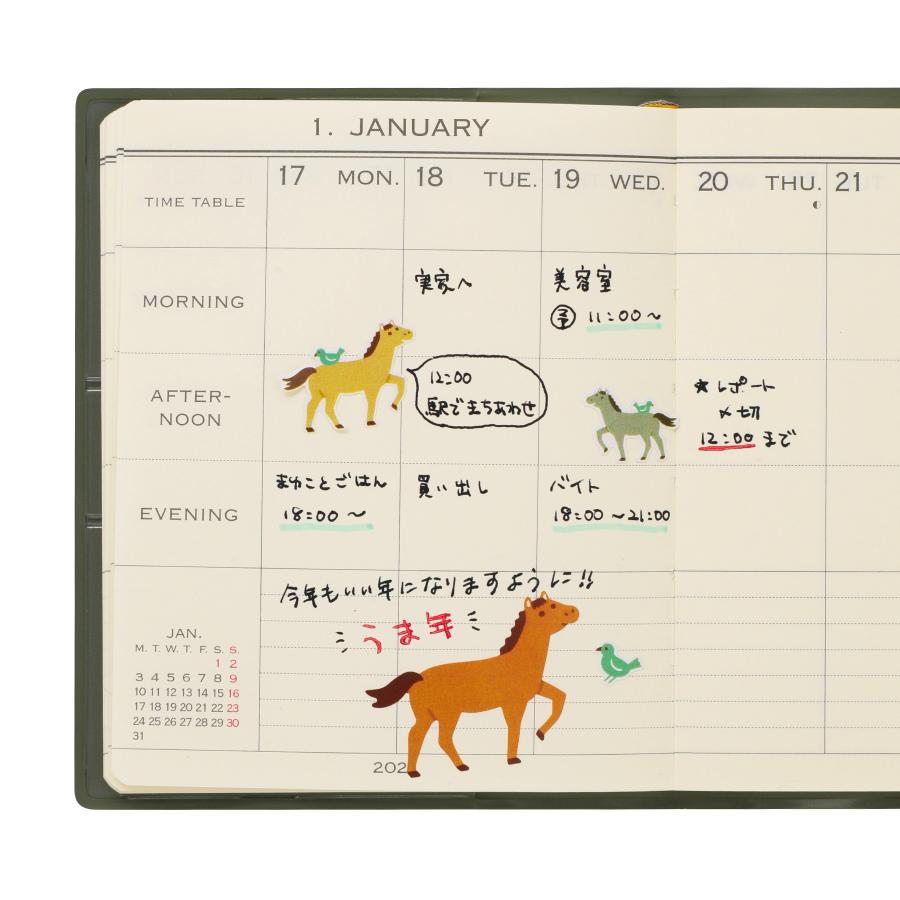 1. JANUARY
17 MON. 18 TUE. 19 WED. 20 THU. 21
TIME TABLE
MORNING
実家へ
美容室
予 11:00～
AFTER-
NOON
12:00
駅でまちあわせ
★レポート
〆切
12:00 まで
EVENING
まゆことごはん
18:00 ～
買い出し
バイト
18:00 ～21:00
今年もいい年になりますように!!
うま年
JAN.
M. T. W. T. F. S. S.
1 2
3 4 5 6 7 8 9
10 11 12 13 14 15 16
17 18 19 20 21 22 23
24 25 26 27 28 29 30
31
202